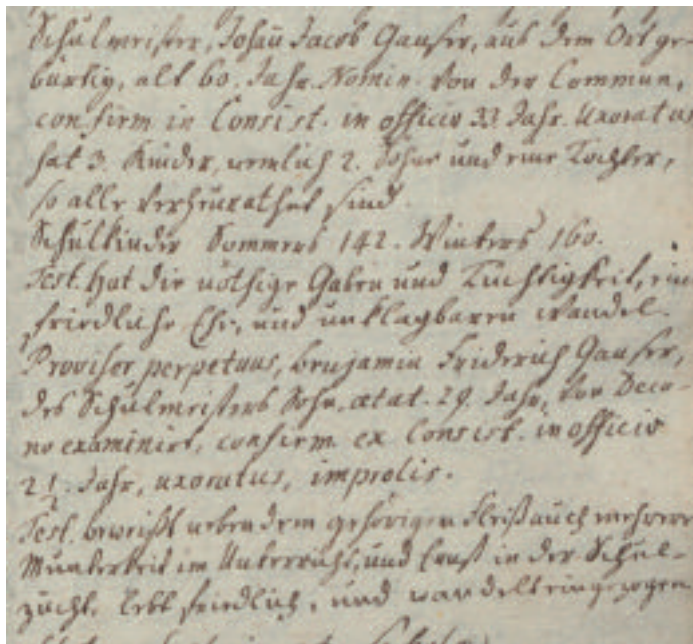 Schulmeister, Johan Jacob Gauser, aus dem Ort ge-
bürtig, alt 60. Jahr. Nomin. von der Commun,
confirm in Consist. in officio 33 Jahr. Uxoratus
hat 3. Kinder, nemlich 2. Söhne und eine Tochter,
so alle verheurathet sind.
Schulkinder Sommers 142. Winters 160.
Test. Hat die nöthige Gaben und Tüchtigkeit, ein
friedliche Ehe, und unklagbaren Wandel.
Provisor perpetuus, Benjamin Friderich Gauser,
des Schulmeisters Sohn, aetat. 29. Jahr, von Deca-
no examinirt, confirm. ex Consist. in officio
2½. Jahr, uxoratus, improlis.
Test. beweißt neben dem gehörigen Fleiß auch mehrere
Munterkeit im Unterricht, und Ernst in der Schul-
zucht. Lebt friedlich, und wandelt eingezogen